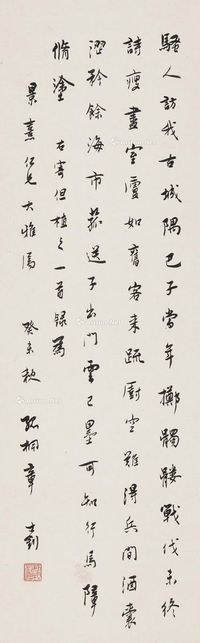 騷人訪我古城隅已子當年擲髑髏戰伐未終
詩瘦盡室廬如舊客來疏廚空難得兵間酒囊
澀矜餘海市菰送子出門雲已墨可知行馬障
脩塗 右寄但植之一首錄為
景熹仁兄大雅屬 癸未秋 孤桐章士釗